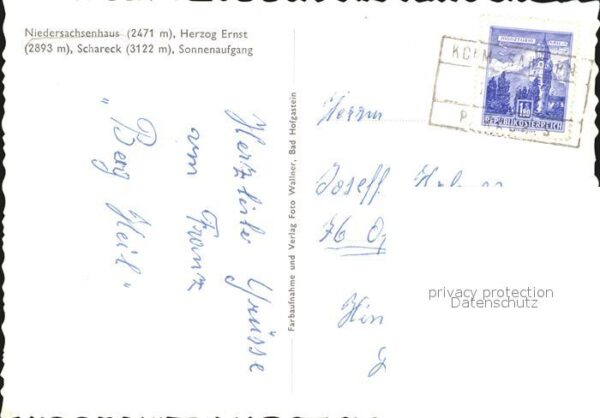 Niedersachsenhaus (2471 m), Herzog Ernst
(2893 m), Schareck (3122 m), Sonnenaufgang
Herzliche Grüsse
vom Franz
"Berg Heil"
Farbaufnahme und Verlag Foto Wallner, Bad Hofgastein
REPUBLIK ÖSTERREICH
Herrn
Joseff
76
privacy protection
Datenschutz